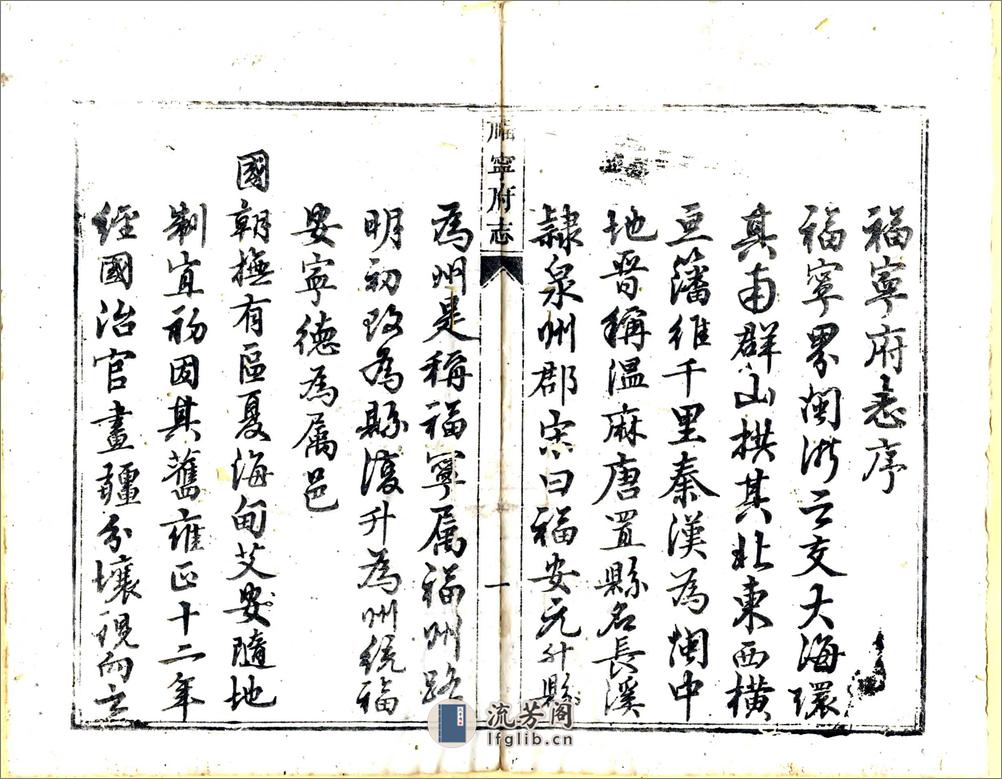 福寧府志序
福寧界閩浙之交大海環
其南群山拱其北東西橫
亘藩維千里秦漢為閩中
地晉稱温麻唐置縣名長溪
隷泉州郡宋曰福安元升縣
福寧府志
一
為州是稱福寧属福州路
明初改為縣復升為州統福
安寧德為属邑
國朝撫有區夏海甸艾安隨地
制宜初因其舊雍正十二年
經國治官畫疆分壤視向之
流芳阁
lfglib.cn